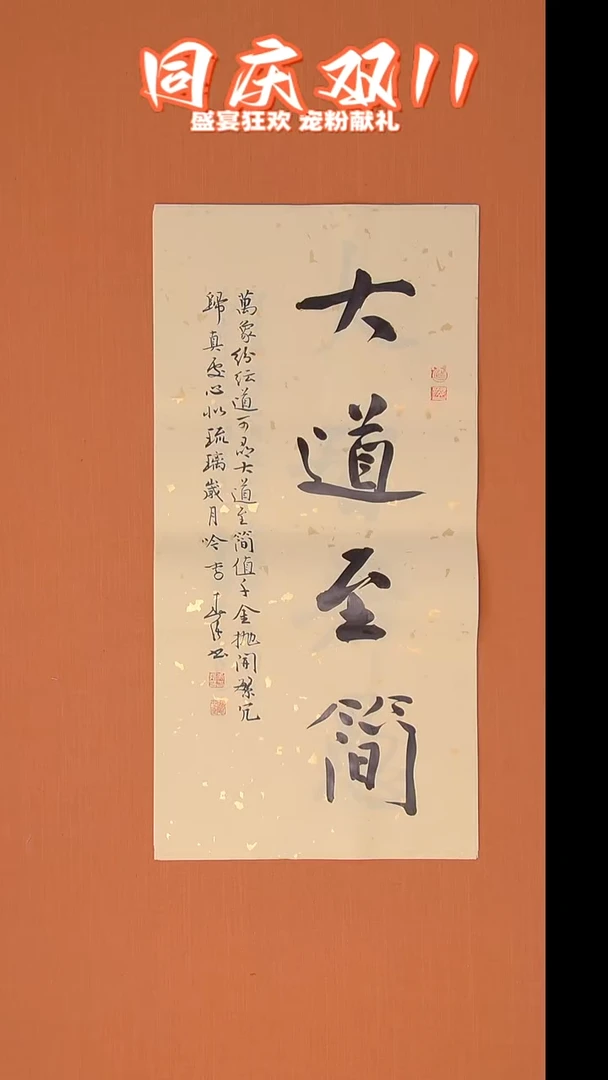 同庆双11
盛宴狂欢 宠粉献礼
大道至简
萬象紛纭道可尋大道至简值千金抛開繁冗
歸真處心似琉璃歲月吟